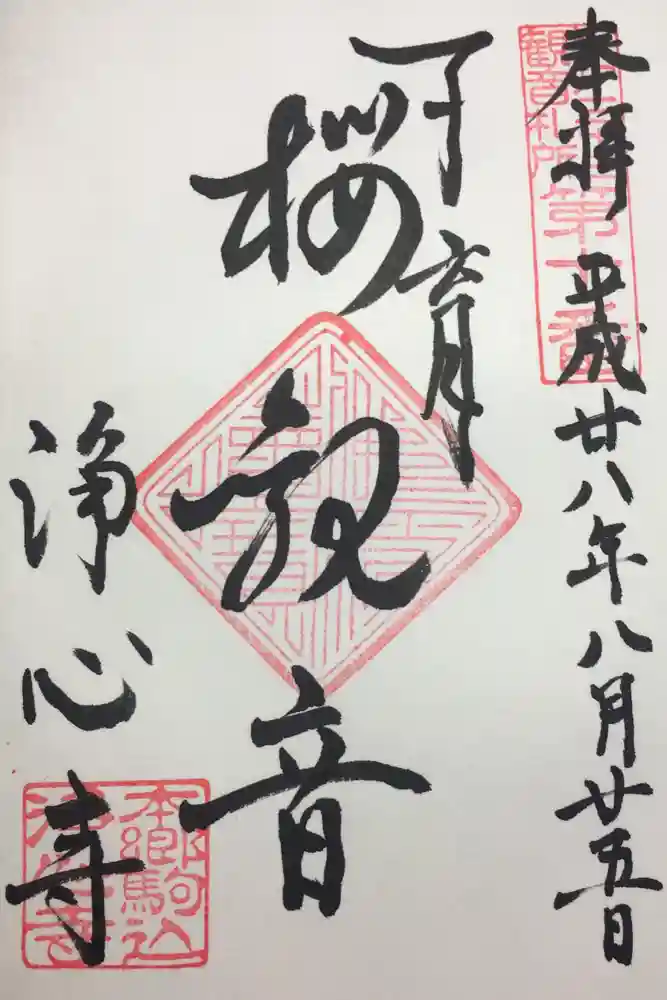 奉拝 平成廿八年八月廿五日
子育
桜観音
浄心寺
観音札所第十番
本郷駒込
浄心寺